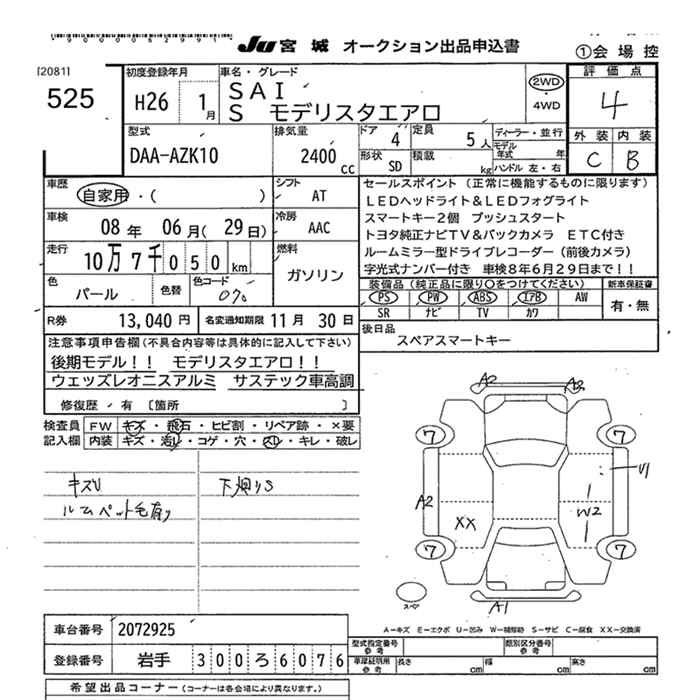 JU 宮城 オークション出品申込書
①会場控
[2081]
525
初度登録年月
H26 1月
車名・グレード
SAI
S モデリスタエアロ
2WD
4WD
評価点
4
外装 内装
C B
型式
DAA-AZK10
排気量
2400 cc
ドア 4
定員 5人
形状 SD
積載 kg
ディーラー・並行
モデル年式 年
ハンドル 左・右
車歴
自家用・( )
シフト
AT
車検
08年 06月(29日)
冷房
AAC
走行
10万7千050km
燃料
ガソリン
色
パール
色替
色コード
070
R券 13,040円
名変通知期限 11月 30日
セールスポイント (正常に機能するものに限ります)
LEDヘッドライト&LEDフォグライト
スマートキー2個 プッシュスタート
トヨタ純正ナビTV&バックカメラ ETC付き
ルームミラー型ドライブレコーダー(前後カメラ)
字光式ナンバー付き 車検8年6月29日まで!!
装備品(純正品に限り○をつけてください)
新車保証書
PS PW ABS エアB AW
SR ナビ TV カワ
有・無
後日品
スペアスマートキー
注意事項申告欄(不具合内容等は具体的に記入して下さい)
後期モデル!! モデリスタエアロ!!
ウェッズレオニスアルミ サステック車高調
修復歴・有 〔箇所 〕
検査員記入欄
FW キズ・飛石・ヒビ割・リペア跡・×要
内装 キズ・汚レ・コゲ・穴・スレ・キレ・破レ
キズU
ルームペット毛有り
下廻りS
A2 A2
7 7
A2
U1
XX
W2
7 7
スペア
A1
A―キズ E―エクボ U―凹み W―補修跡 S―サビ C―腐食 XX―交換済
車台番号 2072925
登録番号 岩手 300ろ6076
型式指定番号 参考
類別区分番号 参考
車庫証明用参考
長さ cm
幅 cm
高さ cm
希望出品コーナー(コーナーは各会場により異なります。)